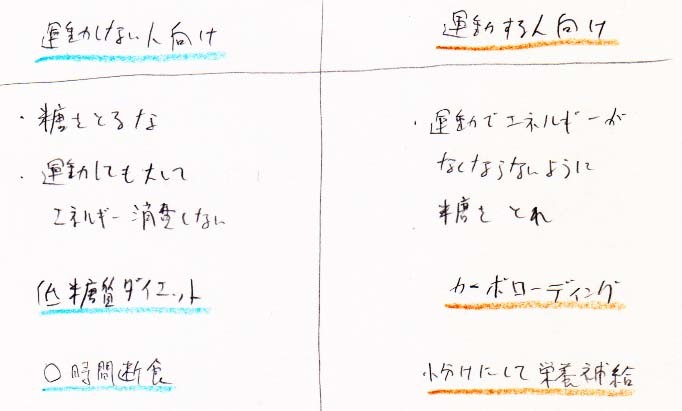 運動しない人向け
運動する人向け
・糖をとるな
・運動しても大して
エネルギー消費しない
低糖質ダイエット
〇時間断食
・運動でエネルギーが
なくならないように
糖をとれ
カーボローディング
小分けにして栄養補給